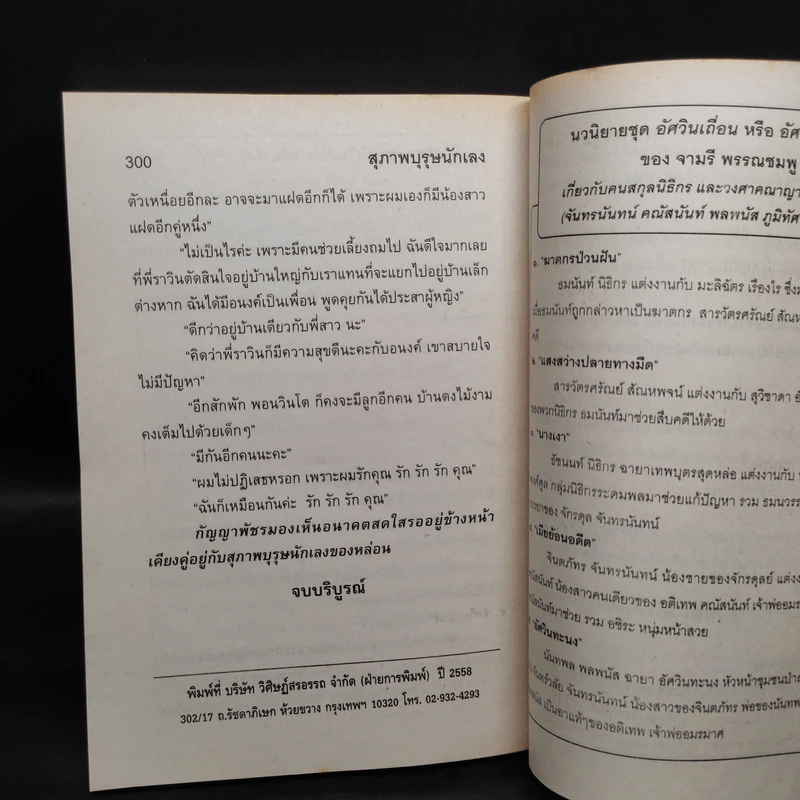 300
สุภาพบุรุษนักเลง
ตัวเหนื่อยอีกละ อาจจะมาแฝดอีกก็ได้ เพราะผมเองก็มีน้องสาว
แฝดอีกคู่หนึ่ง”
“ไม่เป็นไรค่ะ เพราะมีคนช่วยเลี้ยงถมไป ฉันดีใจมากเลย
ที่พี่ราวินตัดสินใจอยู่บ้านใหญ่กับเราแทนที่จะแยกไปอยู่บ้านเล็ก
ต่างหาก ฉันได้มีอนงค์เป็นเพื่อน พูดคุยกันได้ประสาผู้หญิง”
“ดีกว่าอยู่บ้านเดียวกับพี่สาว นะ”
“คิดว่าพี่ราวินก็มีความสุขดีนะคะกับอนงค์ เขาสบายใจ
ไม่มีปัญหา”
“อีกสักพัก พอนวินโต ก็คงจะมีลูกอีกคน บ้านดงไม้งาม
คงเต็มไปด้วยเด็กๆ”
“มีกันอีกคนนะคะ”
“ผมไม่ปฏิเสธหรอก เพราะผมรักคุณ รัก รัก รัก คุณ”
“ฉันก็เหมือนกันค่ะ รัก รัก รัก คุณ”
กัญญาพัชรมองเห็นอนาคตสดใสรออยู่ข้างหน้า
เคียงคู่อยู่กับสุภาพบุรุษนักเลงของหล่อน
จบบริบูรณ์
พิมพ์ที่ บริษัท วิศิษฎ์สรอรรถ จำกัด (ฝ่ายการพิมพ์) ปี 2558
302/17 ถ.รัชดาภิเษก ห้วยขวาง กรุงเทพฯ 10320 โทร. 02-932-4293
นวนิยายชุด อัศวินเถื่อน หรือ อัศ
ของ จามรี พรรณชมพู
เกี่ยวกับคนสกุลนิธิกร และวงศาคณาญา
(จันทรนันทน์ คณัสนันท์ พลพนัส ภูมิทัศ
๑. “ฆาตกรป่วนฝัน”
ธมนันท์ นิธิกร แต่งงานกับ มะลิฉัตร เรืองไร ซึ่งม
เมื่อธมนันท์ถูกกล่าวหาเป็นฆาตกร สารวัตรศรัณย์ สัณห
คดี
๒. “แสงสว่างปลายทางมืด”
สารวัตรศรัณย์ สัณหพจน์ แต่งงานกับ สุวิชาดา
ของพวกนิธิกร ธมนันท์มาช่วยสืบคดีให้ด้วย
๓. “นางเงา”
ธัชนนท์ นิธิกร ฉายาเทพบุตรสุดหล่อ แต่งงานกับ
กลุ่มนิธิกรระดมพลมาช่วยแก้ปัญหา รวม ธมนวรร
ของ จักรดุล จันทรนันทน์
“เมียย้อนอดีต”
จินตภัทร จันทรนันทน์ น้องชายของจักรดุลย์ แต่ง
น้องสาวคนเดียวของ อติเทพ คณัสนันท์ เจ้าพ่ออมร
มาช่วย รวม อชิระ หนุ่มหน้าสวย
“อัศวินทะนง”
นันทพล พลพนัส ฉายา อัศวินทะนง หัวหน้าชุมชนป่า
จันทรนันทน์ น้องสาวของจินตภัทร พ่อของนันทพ
เป็นอาแท้ๆของอติเทพ เจ้าพ่ออมรมาศ